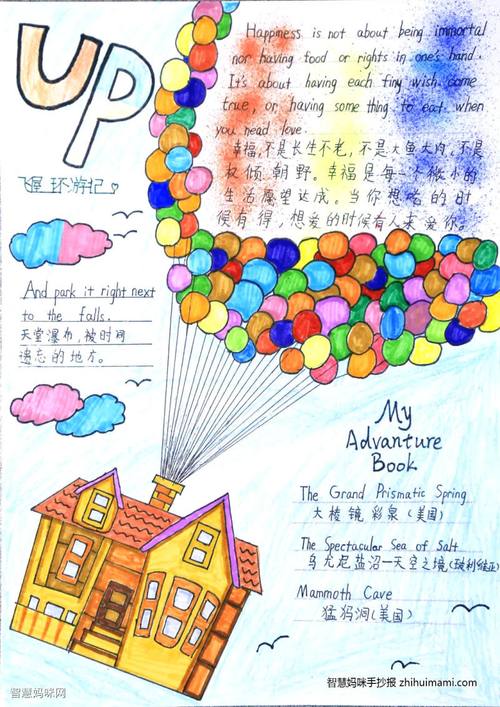 UP
飞屋环游记
Happiness is not about being immortal
nor having food or rights in one's hand.
It's about having each tiny wish come
true, or having some thing to eat when
you need love.
幸福,不是长生不老,不是大鱼大肉,不是
权倾朝野。幸福是每一个微小的
生活愿望达成。当你想吃的时
候有得,想爱的时候有人来爱你。
And park it right next
to the falls.
天堂瀑布,被时间
遗忘的地方。
My
Advanture
Book
The Grand Prismatic Spring
大棱镜彩泉(美国)
The Spectacular Sea of Salt
乌尤尼盐沼一天空之境(玻利维亚)
Mammoth Cave
猛犸洞(美国)
智慧妈咪网
智慧妈咪手抄报 zhihuimami.com